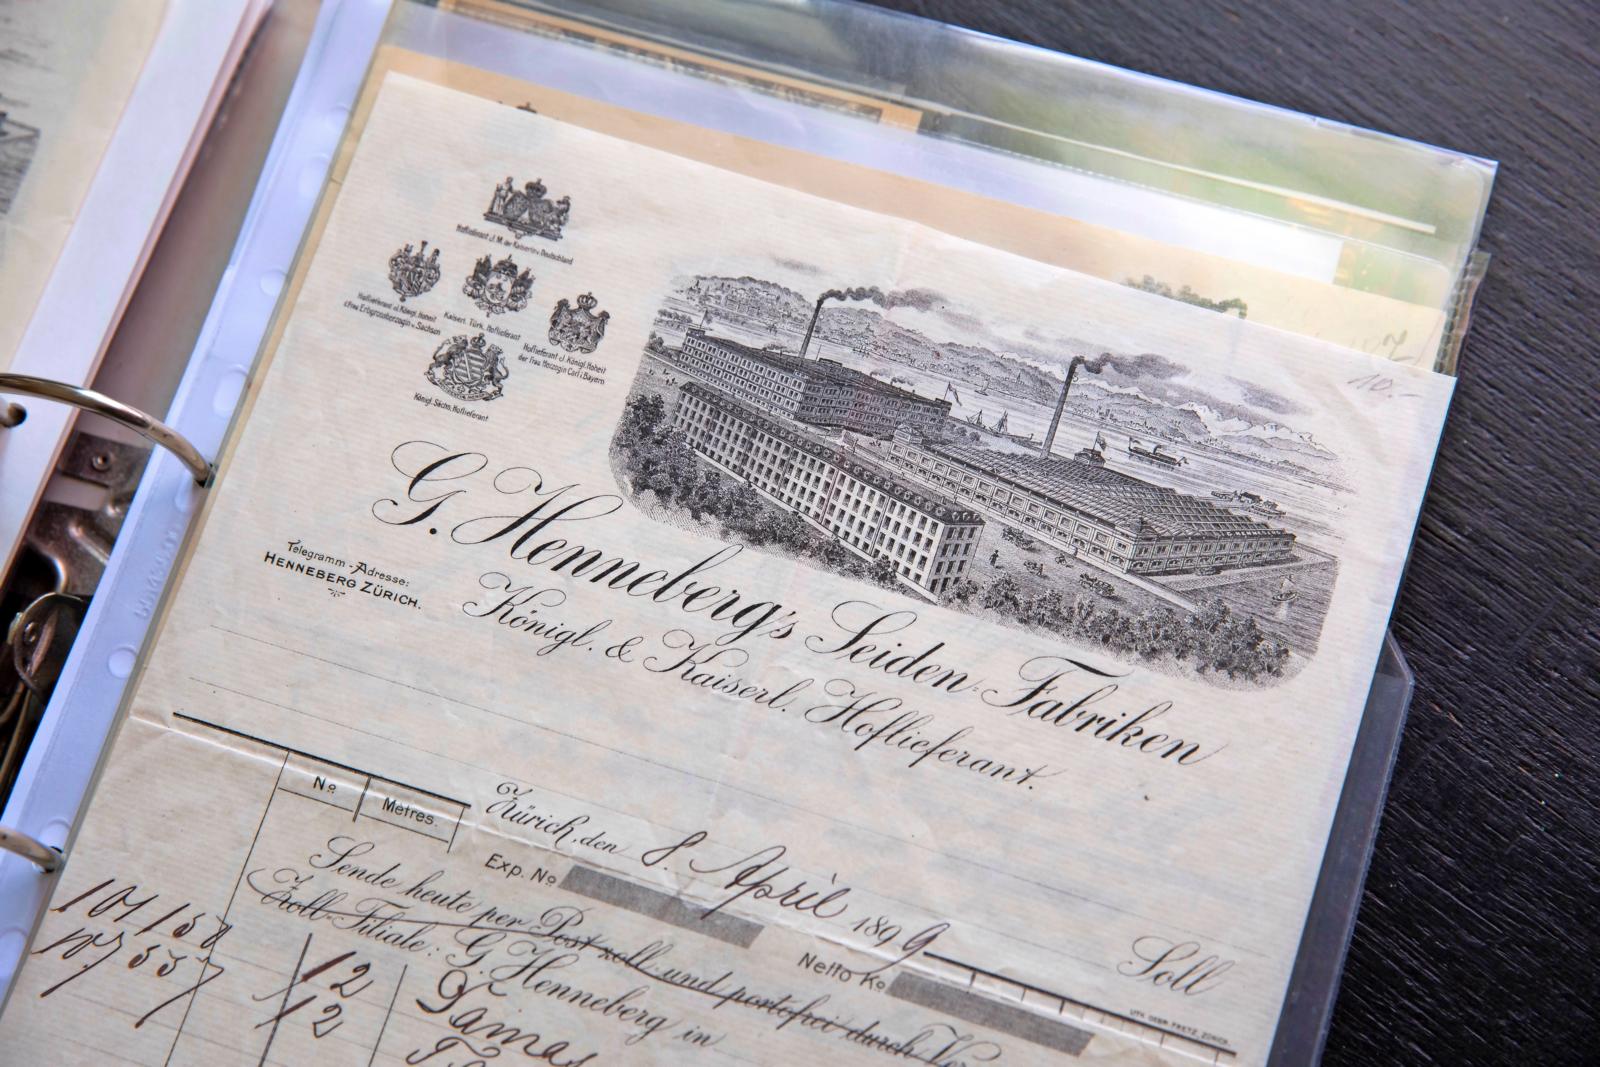 Hoflieferant J. M. der Kaiserin v. Deutschland
Hoflieferant d. Königl. Hoheit
d. Frau Erbgrossherzogin v. Sachsen
Kaiserl. Türk. Hoflieferant
Hoflieferant J. Königl. Hoheit
der Frau Herzogin Carl i. Bayern
Königl. Sächs. Hoflieferant
10.-
G. Henneberg's Seiden-Fabriken
Königl. & Kaiserl. Hoflieferant.
Telegramm-Adresse:
HENNEBERG ZÜRICH.
No Metres.
Zürich, den 8. April 1899
Exp. No
Netto Ko
Soll
Sende heute per Post zoll- und portofrei durch
Zoll-Filiale: G. Henneberg in
LITH. GEBR. FRETZ, ZÜRICH.
12 Damas
12